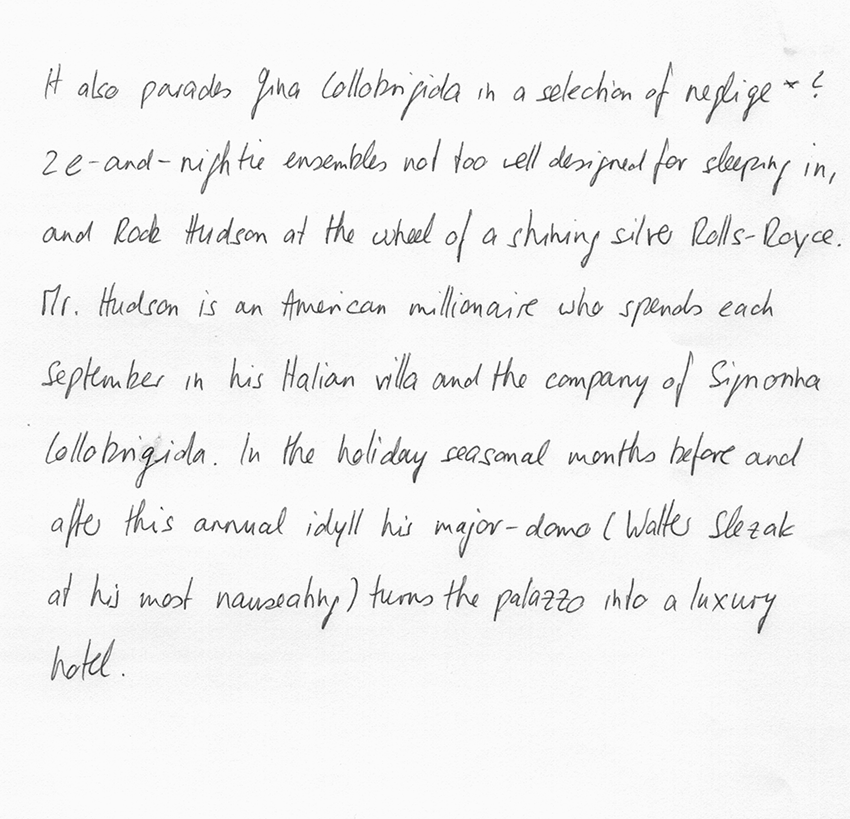 It also parades Gina Lollobrigida in a selection of neglige * ?
2 e-and-nightie ensembles not too well designed for sleeping in,
and Rock Hudson at the wheel of a shining silver Rolls-Royce.
Mr. Hudson is an American millionaire who spends each
September in his Italian villa and the company of Signorina
Lollobrigida. In the holiday seasonal months before and
after this annual idyll his major-domo (Walter Slezak
at his most nauseating) turns the palazzo into a luxury
hotel.